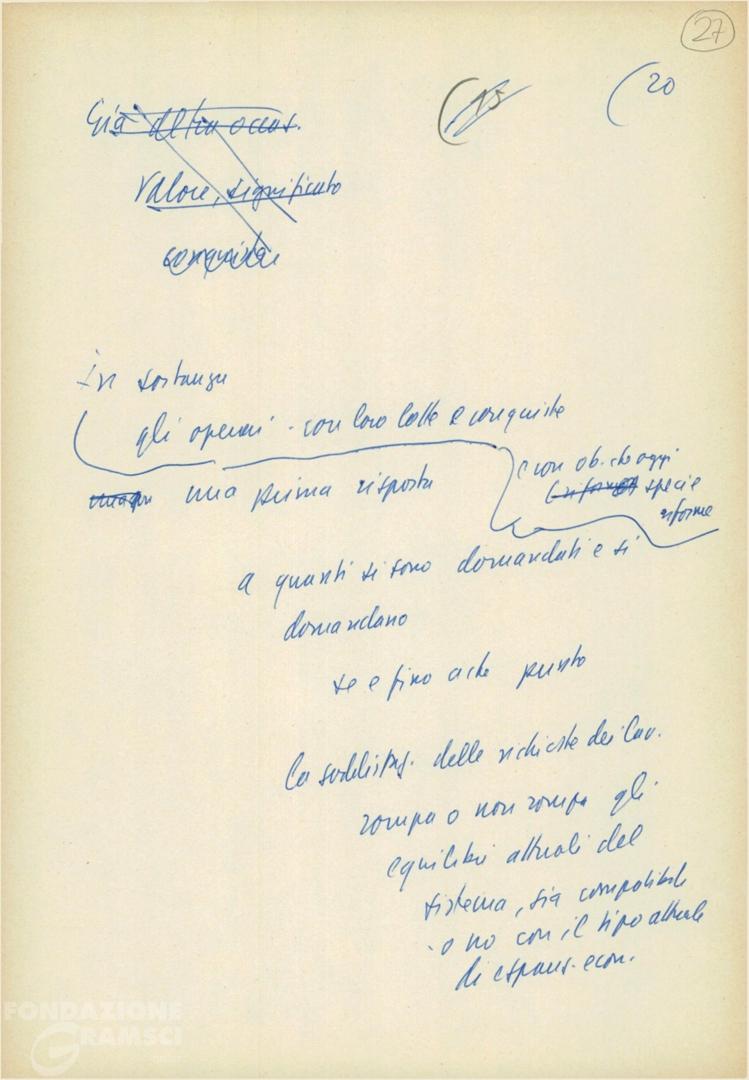 27
15
(20
Già altra occas.
Valore, significato
conquiste
In sostanza
gli operai - con loro lotte e conquiste
una prima risposta
e con ob. che oggi
specie
riforme
a quanti si sono domandati e si
domandano
se e fino a che punto
la soddisfaz. delle richieste dei lav.
rompa o non rompa gli
equilibri attuali del
sistema, sia compatibile
o no con il tipo attuale
di espans. econ.
FONDAZIONE
GRAMSCI